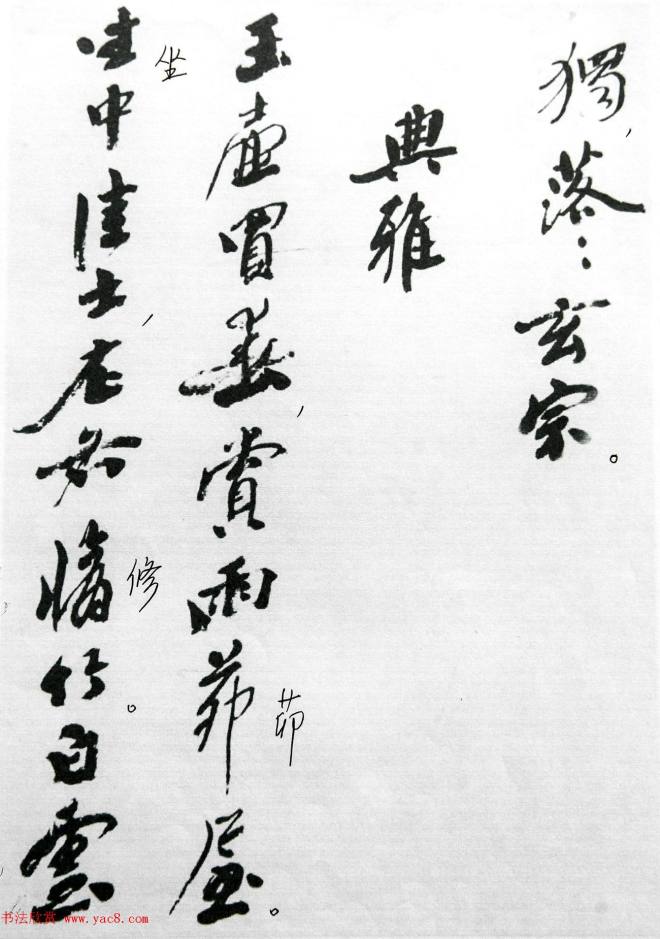 獨，落々玄宗。
典雅
玉壺買春，賞雨茆屋。
茆
坐中佳士，左右脩竹。白雲
坐
修
书法欣赏 www.yac8.com